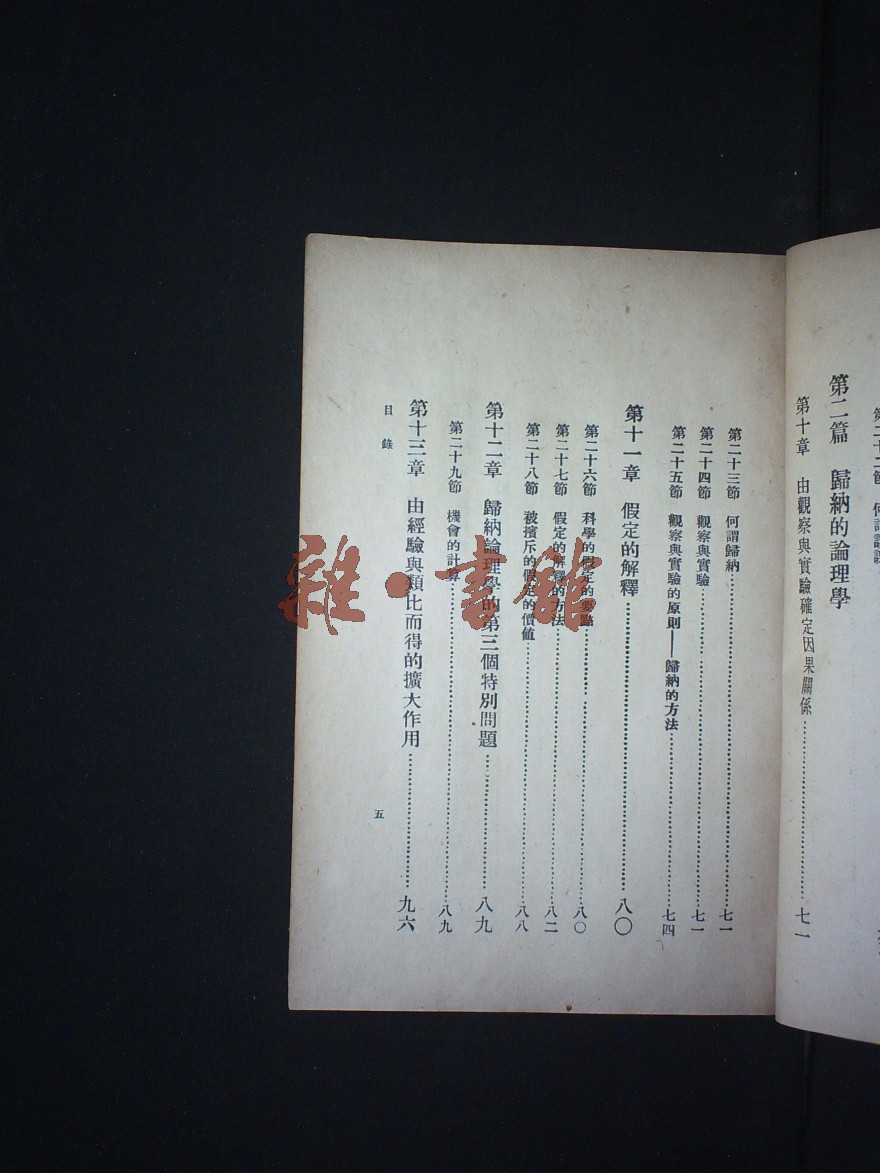 第二篇 歸納的論理學
第十章 由觀察與實驗確定因果關係……七一
第二十三節 何謂歸納……七一
第二十四節 觀察與實驗……七一
第二十五節 觀察與實驗的原則——歸納的方法……七四
第十一章 假定的解釋……八〇
第二十六節 科學的假定的要點……八〇
第二十七節 假定的解釋的方法……八二
第二十八節 被擯斥的假定的價値……八八
第十二章 歸納論理學的第三個特別問題……八九
第二十九節 機會的計算……八九
第十三章 由經驗與類比而得的擴大作用……九六
目錄
五
雜·書館